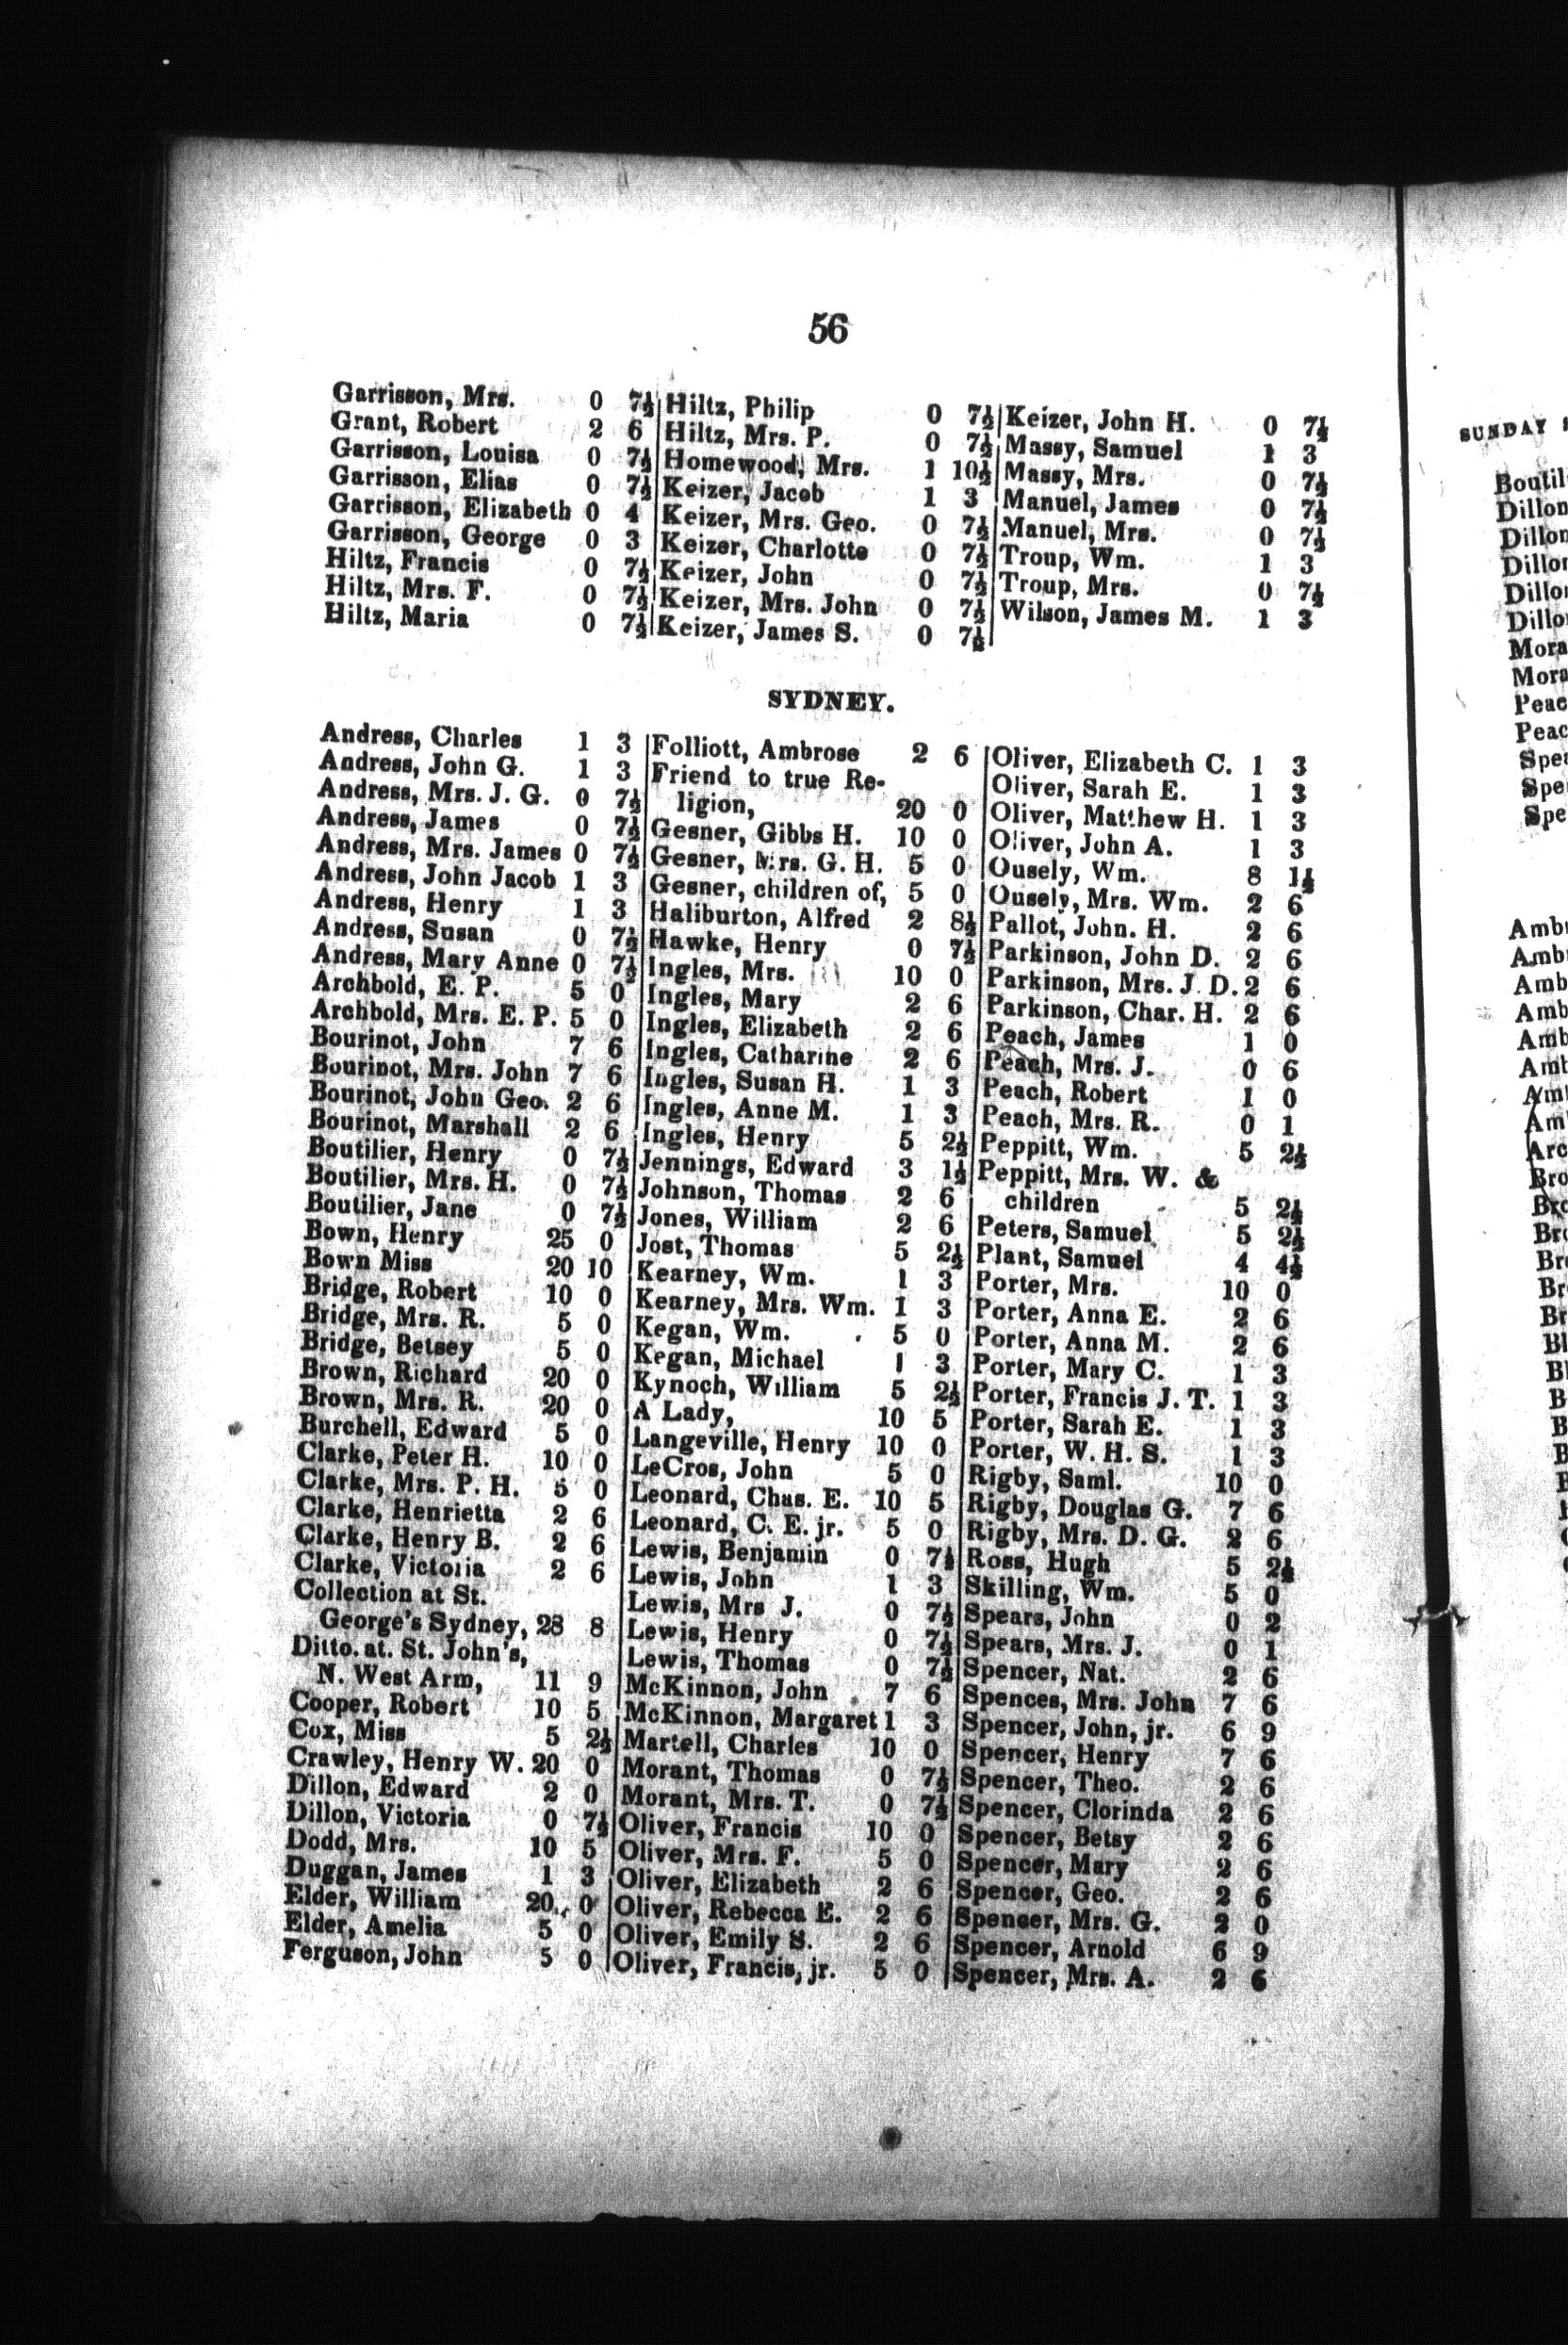 56
Garrisson, Mrs. 0 7½
Grant, Robert 2 6
Garrisson, Louisa 0 7½
Garrisson, Elias 0 7½
Garrisson, Elizabeth 0 4
Garrisson, George 0 3
Hiltz, Francis 0 7½
Hiltz, Mrs. F. 0 7½
Hiltz, Maria 0 7½
Hiltz, Philip 0 7½
Hiltz, Mrs. P. 0 7½
Homewood, Mrs. 1 10½
Keizer, Jacob 1 3
Keizer, Mrs. Geo. 0 7½
Keizer, Charlotte 0 7½
Keizer, John 0 7½
Keizer, Mrs. John 0 7½
Keizer, James S. 0 7½
Keizer, John H. 0 7½
Massy, Samuel 1 3
Massy, Mrs. 0 7½
Manuel, James 0 7½
Manuel, Mrs. 0 7½
Troup, Wm. 1 3
Troup, Mrs. 0 7½
Wilson, James M. 1 3
SYDNEY.
Andress, Charles 1 3
Andress, John G. 1 3
Andress, Mrs. J. G. 0 7½
Andress, James 0 7½
Andress, Mrs. James 0 7½
Andress, John Jacob 1 3
Andress, Henry 1 3
Andress, Susan 0 7½
Andress, Mary Anne 0 7½
Archbold, E. P. 5 0
Archbold, Mrs. E. P. 5 0
Bourinot, John 7 6
Bourinot, Mrs. John 7 6
Bourinot, John Geo. 2 6
Bourinot, Marshall 2 6
Boutilier, Henry 0 7½
Boutilier, Mrs. H. 0 7½
Boutilier, Jane 0 7½
Bown, Henry 25 0
Bown Miss 20 10
Bridge, Robert 10 0
Bridge, Mrs. R. 5 0
Bridge, Betsey 5 0
Brown, Richard 20 0
Brown, Mrs. R. 20 0
Burchell, Edward 5 0
Clarke, Peter H. 10 0
Clarke, Mrs. P. H. 5 0
Clarke, Henrietta 2 6
Clarke, Henry B. 2 6
Clarke, Victoria 2 6
Collection at St.
George's Sydney, 28 8
Ditto. at. St. John's,
N. West Arm, 11 9
Cooper, Robert 10 5
Cox, Miss 5 2½
Crawley, Henry W. 20 0
Dillon, Edward 2 0
Dillon, Victoria 0 7½
Dodd, Mrs. 10 5
Duggan, James 1 3
Elder, William 20 0
Elder, Amelia 5 0
Ferguson, John 5 0
Folliott, Ambrose 2 6
Friend to true Re-
ligion, 20 0
Gesner, Gibbs H. 10 0
Gesner, Mrs. G. H. 5 0
Gesner, children of, 5 0
Haliburton, Alfred 2 8½
Hawke, Henry 0 7½
Ingles, Mrs. 10 0
Ingles, Mary 2 6
Ingles, Elizabeth 2 6
Ingles, Catharine 2 6
Ingles, Susan H. 1 3
Ingles, Anne M. 1 3
Ingles, Henry 5 2½
Jennings, Edward 3 1½
Johnson, Thomas 2 6
Jones, William 2 6
Jost, Thomas 5 2½
Kearney, Wm. 1 3
Kearney, Mrs. Wm. 1 3
Kegan, Wm. 5 0
Kegan, Michael 1 3
Kynoch, William 5 2½
A Lady, 10 5
Langeville, Henry 10 0
LeCros, John 5 0
Leonard, Chas. E. 10 5
Leonard, C. E. jr. 5 0
Lewis, Benjamin 0 7½
Lewis, John 1 3
Lewis, Mrs J. 0 7½
Lewis, Henry 0 7½
Lewis, Thomas 0 7½
McKinnon, John 7 6
McKinnon, Margaret 1 3
Martell, Charles 10 0
Morant, Thomas 0 7½
Morant, Mrs. T. 0 7½
Oliver, Francis 10 0
Oliver, Mrs. F. 5 0
Oliver, Elizabeth 2 6
Oliver, Rebecca E. 2 6
Oliver, Emily S. 2 6
Oliver, Francis, jr. 5 0
Oliver, Elizabeth C. 1 3
Oliver, Sarah E. 1 3
Oliver, Matthew H. 1 3
Oliver, John A. 1 3
Ousely, Wm. 8 1½
Ousely, Mrs. Wm. 2 6
Pallot, John. H. 2 6
Parkinson, John D. 2 6
Parkinson, Mrs. J. D. 2 6
Parkinson, Char. H. 2 6
Peach, James 1 0
Peach, Mrs. J. 0 6
Peach, Robert 1 0
Peach, Mrs. R. 0 1
Peppitt, Wm. 5 2½
Peppitt, Mrs. W. &
children 5 2½
Peters, Samuel 5 2½
Plant, Samuel 4 4½
Porter, Mrs. 10 0
Porter, Anna E. 2 6
Porter, Anna M. 2 6
Porter, Mary C. 1 3
Porter, Francis J. T. 1 3
Porter, Sarah E. 1 3
Porter, W. H. S. 1 3
Rigby, Saml. 10 0
Rigby, Douglas G. 7 6
Rigby, Mrs. D. G. 2 6
Ross, Hugh 5 2½
Skilling, Wm. 5 0
Spears, John 0 2
Spears, Mrs. J. 0 1
Spencer, Nat. 2 6
Spences, Mrs. John 7 6
Spencer, John, jr. 6 9
Spencer, Henry 7 6
Spencer, Theo. 2 6
Spencer, Clorinda 2 6
Spencer, Betsy 2 6
Spencer, Mary 2 6
Spencer, Geo. 2 6
Spencer, Mrs. G. 2 0
Spencer, Arnold 6 9
Spencer, Mrs. A. 2 6
SUNDAY